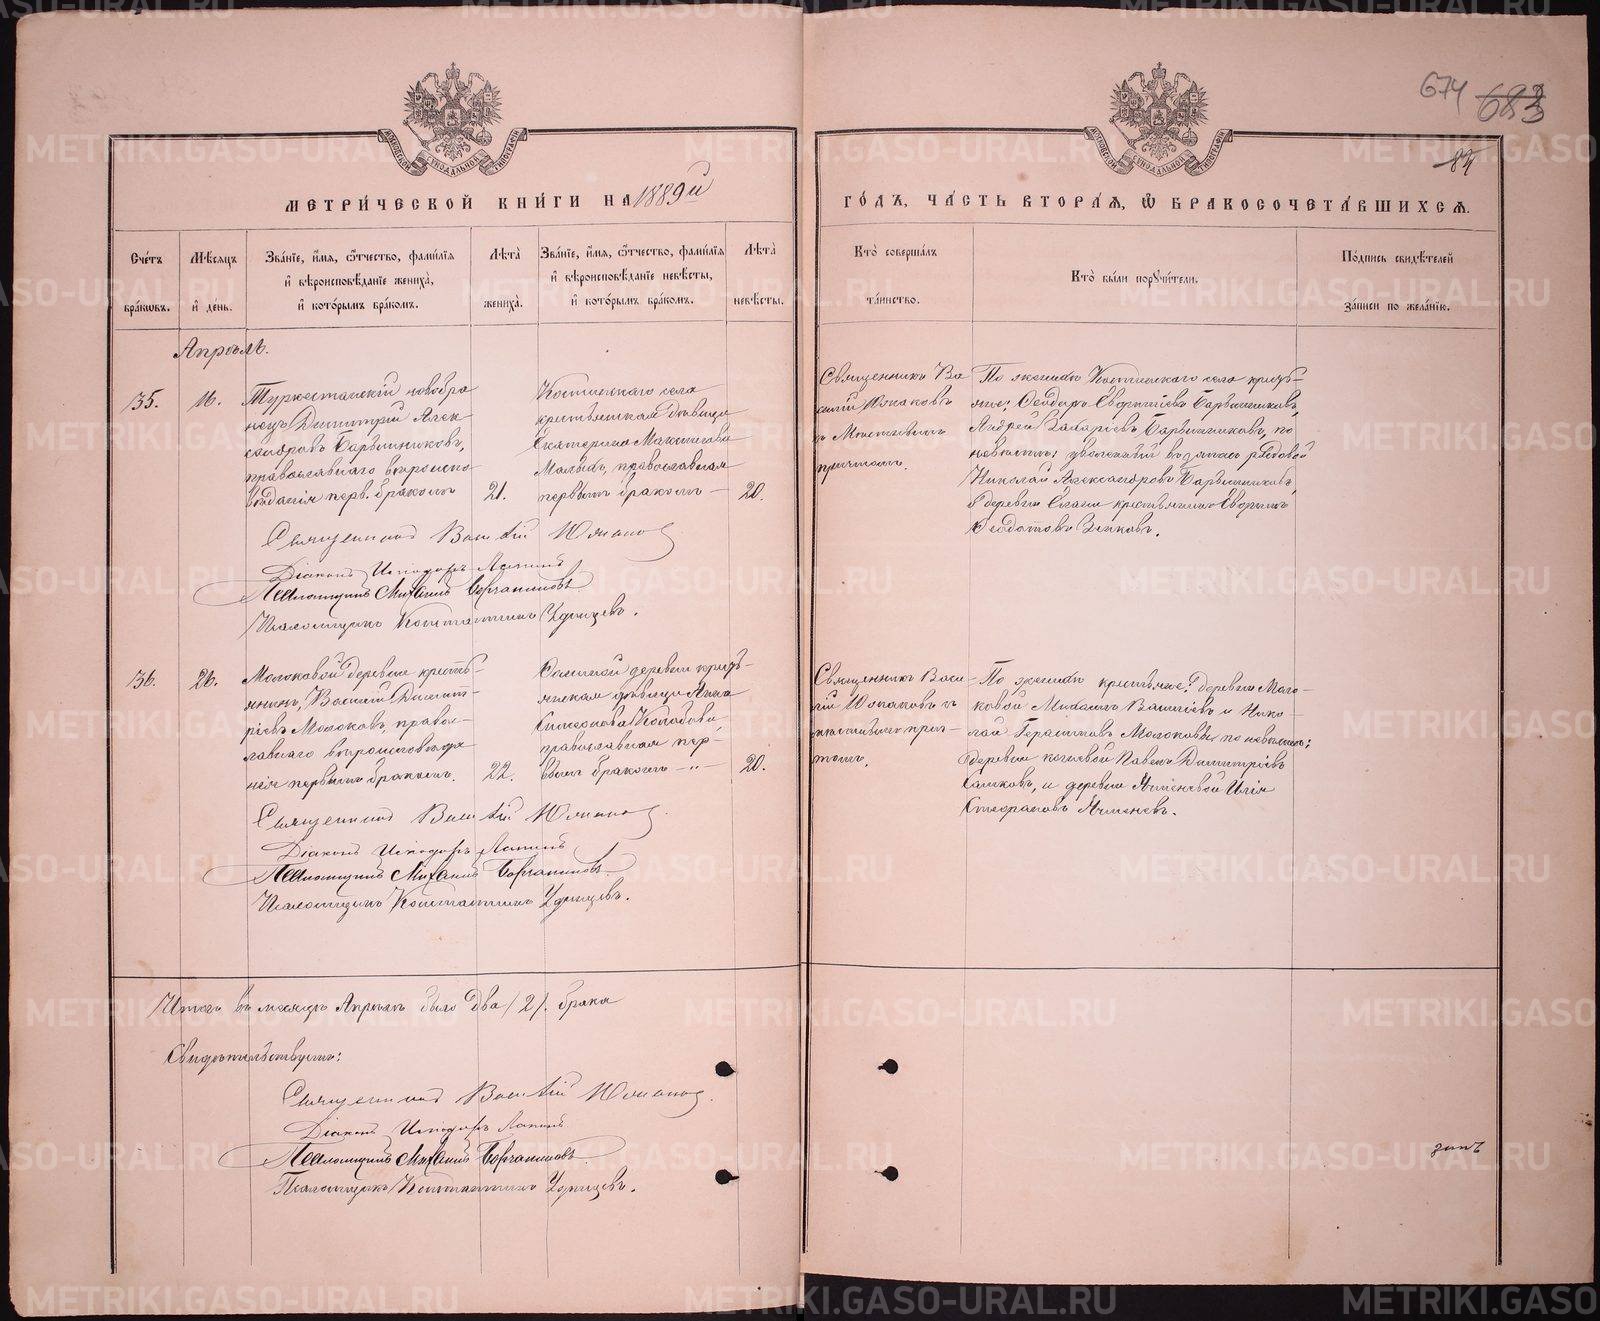 674 683
83
МЕТРИЧЕСКОЙ КНИГИ НА 1889й
ГОДЪ, ЧАСТЬ ВТОРАЯ, Ѿ БРАКОСОЧЕТАВШИХСЯ.
Счетъ браковъ.
Мѣсяцъ и день.
Званіе, имя, ѿтчество, фамилія
и вѣроисповѣданіе жениха,
и которымъ бракомъ.
Лѣта жениха.
Званіе, имя, ѿтчество, фамилія
и вѣроисповѣданіе невѣсты,
и которымъ бракомъ.
Лѣта невѣсты.
Кто совершалъ таинство.
Кто были порꙋчители.
Подпись свидѣтелей записи по желанію.
Апрѣль.
35.
16.
Туркестанскій новобра
нецъ Димитрій Алек
сандровъ Барышниковъ,
православнаго вѣроиспо
вѣданія перв. бракомъ
21.
села
крестьянская дѣвица
Екатерина Максимова
Малыхъ, православная
первымъ бракомъ —
20.
Священникъ Ва
силій Юмановъ
съ мѣстнымъ
причтомъ.
По женихѣ: села кресть-
яне: Ѳеодоръ Барышниковъ,
Андрей Захаріевъ Барышниковъ, по
невѣстѣ: въ запасъ рядовой
Николай Александровъ Барышниковъ,
деревни крестьянинъ
Ѳедотовъ
Священникъ Василій Юмановъ
Діаконъ Исидоръ Ляпинъ
Псаломщикъ Михаилъ
Псаломщикъ Константинъ Удинцевъ.
36.
26.
Молоковой деревни кресть-
янинъ, Василій Димит-
ріевъ Молоковъ, право-
славнаго вѣроисповѣда
нія первымъ бракомъ.
22.
деревни кресть-
янская дѣвица Анна
Симеонова
православная пер-
вымъ бракомъ — „ —
20.
Священникъ Васи-
лій Юмановъ съ
мѣстнымъ прич-
томъ.
По женихѣ крестьяне: деревни Моло-
ковой Михаилъ Василіевъ и Нико-
лай Герасимовъ Молоковы, по невѣстѣ:
деревни Павелъ Димитріевъ
и деревни Ячменевой Илія
Стефановъ Ячменевъ.
Священникъ Василій Юмановъ.
Діаконъ Исидоръ Ляпинъ
Псаломщикъ Михаилъ
Псаломщикъ Константинъ Удинцевъ.
Итого въ мѣсяцѣ Апрѣлѣ было два /2/. брака
Свидѣтельствуемъ:
Священникъ Василій Юмановъ.
Діаконъ Исидоръ Ляпинъ
Псаломщикъ Михаилъ
Псаломщикъ Константинъ Удинцевъ.
METRIKI.GASO-URAL.RU